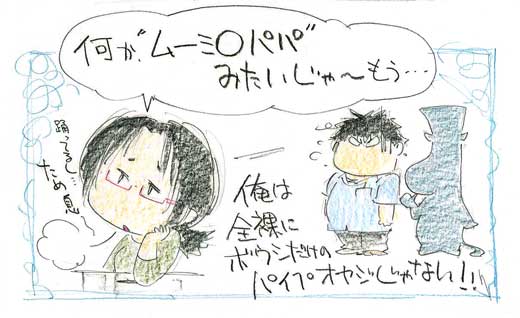 何か、"ムーミ〇パパ"
みたいじゃ〜もう…
踊ってるし…
ため息
俺は
全裸に
ボウシだけの
パイプオヤジじゃない!!